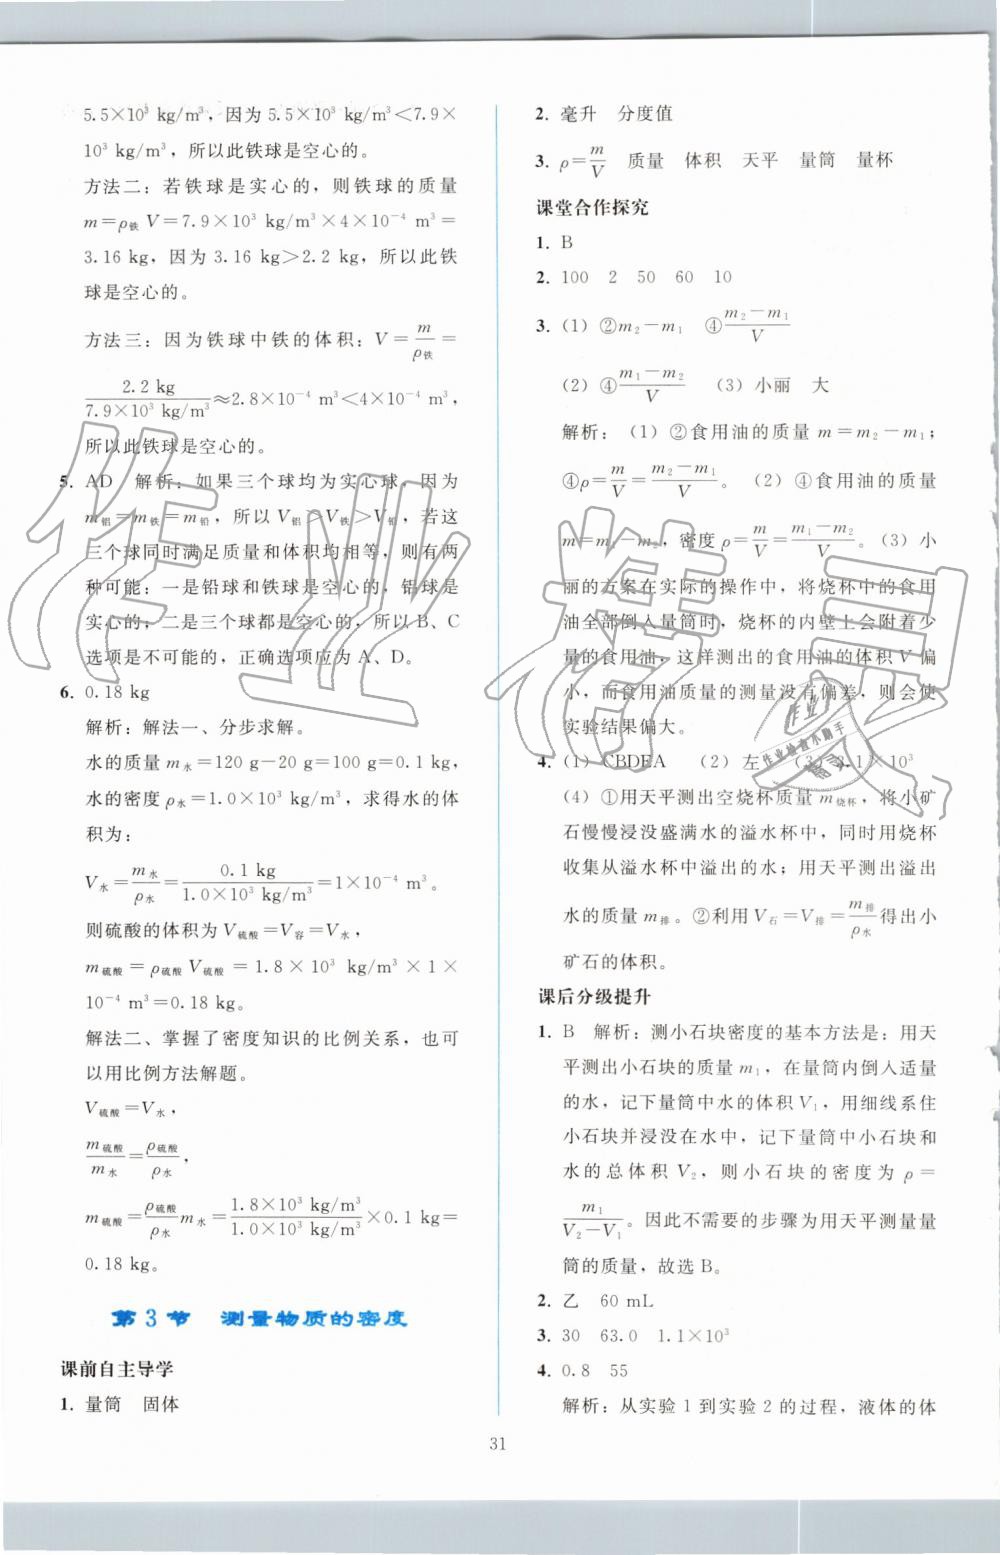 5.5×10³ kg/m³，因为 5.5×10³ kg/m³＜7.9×
10³ kg/m³，所以此铁球是空心的。
方法二：若铁球是实心的，则铁球的质量
m＝ρ铁 V＝7.9×10³ kg/m³×4×10⁻⁴ m³＝
3.16 kg，因为 3.16 kg＞2.2 kg，所以此铁
球是空心的。
方法三：因为铁球中铁的体积：V＝m/ρ铁＝
2.2 kg/7.9×10³ kg/m³≈2.8×10⁻⁴ m³＜4×10⁻⁴ m³，
所以此铁球是空心的。
5. AD 解析：如果三个球均为实心球，因为
m铝＝m铁＝m铅，所以 V铝＞V铁＞V铅，若这
三个球同时满足质量和体积均相等，则有两
种可能：一是铅球和铁球是空心的，铝球是
实心的；二是三个球都是空心的，所以 B、C
选项是不可能的，正确选项应为 A、D。
6. 0.18 kg
解析：解法一、分步求解。
水的质量 m水＝120 g－20 g＝100 g＝0.1 kg，
水的密度 ρ水＝1.0×10³ kg/m³，求得水的体
积为：
V水＝m水/ρ水＝0.1 kg/1.0×10³ kg/m³＝1×10⁻⁴ m³。
则硫酸的体积为 V硫酸＝V容＝V水，
m硫酸＝ρ硫酸 V硫酸＝1.8×10³ kg/m³×1×
10⁻⁴ m³＝0.18 kg。
解法二、掌握了密度知识的比例关系，也可
以用比例方法解题。
V硫酸＝V水，
m硫酸/m水＝ρ硫酸/ρ水，
m硫酸＝ρ硫酸/ρ水 m水＝1.8×10³ kg/m³/1.0×10³ kg/m³×0.1 kg＝
0.18 kg。
第 3 节 测量物质的密度
课前自主导学
1. 量筒 固体
2. 毫升 分度值
3. ρ＝m/V 质量 体积 天平 量筒 量杯
课堂合作探究
1. B
2. 100 2 50 60 10
3. (1) ②m₂－m₁ ④m₂－m₁/V
(2) ④m₁－m₂/V (3) 小丽 大
解析：(1) ②食用油的质量 m＝m₂－m₁；
④ρ＝m/V＝m₂－m₁/V。(2) ④食用油的质量
m＝m₁－m₂，密度 ρ＝m/V＝m₁－m₂/V。(3) 小
丽的方案在实际的操作中，将烧杯中的食用
油全部倒入量筒时，烧杯的内壁上会附着少
量的食用油，这样测出的食用油的体积 V 偏
小，而食用油质量的测量没有偏差，则会使
实验结果偏大。
4. (1) CBDEA (2) 左 (3) 3.1×10³
(4) ①用天平测出空烧杯质量 m烧杯，将小矿
石慢慢浸没盛满水的溢水杯中，同时用烧杯
收集从溢水杯中溢出的水；用天平测出溢出
水的质量 m排。②利用 V石＝V排＝m排/ρ水得出小
矿石的体积。
课后分级提升
1. B 解析：测小石块密度的基本方法是：用天
平测出小石块的质量 m₁，在量筒内倒入适量
的水，记下量筒中水的体积 V₁，用细线系住
小石块并浸没在水中，记下量筒中小石块和
水的总体积 V₂，则小石块的密度为 ρ＝
m₁/V₂－V₁。因此不需要的步骤为用天平测量量
筒的质量，故选 B。
2. 乙 60 mL
3. 30 63.0 1.1×10³
4. 0.8 55
解析：从实验 1 到实验 2 的过程，液体的体
31
作业精灵
作业
作业检查小助手